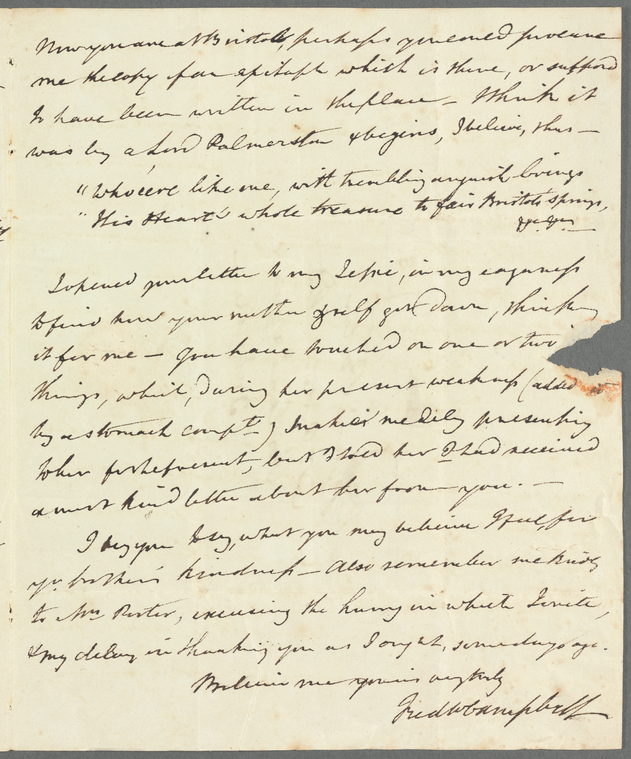 Now you are at Bristol, perhaps you could procure
me the copy of an epitaph which is there, or suppos'd
to have been written in the place – I think it
was by a Lord Palmerston & begins, I believe, thus –
"Whoe'ere like me, with trembling anguish brings
"His Heart's whole treasure to fair Bristol's springs,
&c. &c.
I opened your letter to my Jessie, in my eagerness
to find how your mother & self got down, thinking
it for me – You have touched on one or two
things, which, during her present weakness (added
by a stomach compt.) makes me delay presenting
to her for the present, but I told her I had received
a most kind letter about her from you. –
I beg you to say, what you may believe I feel, for
yr. brother's kindness – Also remember me kindly
to Mrs Porter, excusing the hurry in which I write,
& my delay in thanking you as I ought, some days ago.
Believe me yours
Fredk Campbell